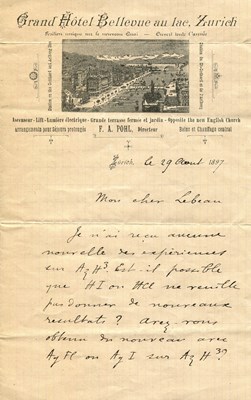 Grand Hôtel Bellevue au lac, Zurich
Position unique sur le nouveau Quai — Grand trafic Central
Ascenseur - Lift - Lumière électrique - Grande terrasse fermée et jardin - Opposite the new English Church
Arrangements pour Séjours prolongés
F. A. POHL, Directeur
Bains et Chauffage central
Zurich, le 29 Aout 1897
Mon cher Lebeau
Je n'ai reçu aucune
nouvelle des expériences
sur Az H³. Est-il possible
que HI ou HCl ne veuille
pas donner de nouveaux
resultats? Avez-vous
obtenu du nouveau avec
Ag Fl ou Ag I sur Az H³?